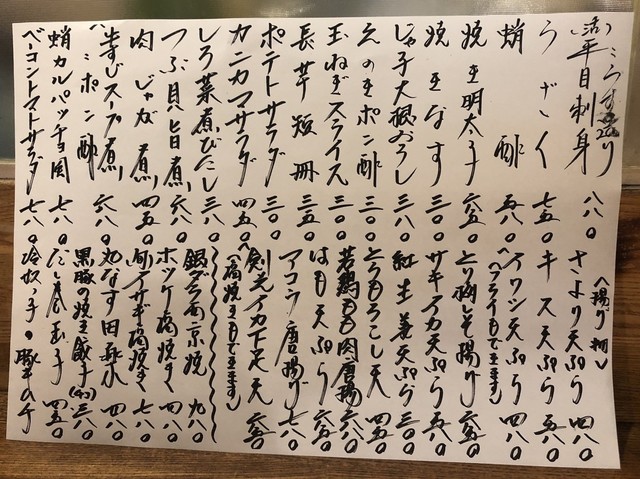 活平目刺身 八八〇
うざく 七五〇
蛸酢 五八〇
焼き明太子 六五〇
焼きなす 三〇〇
じゃこ大根おろし 三八〇
えのきポン酢 三〇〇
玉ねぎスライス 三〇〇
長芋短冊 三五〇
ポテトサラダ 三〇〇
カニカマサラダ 四五〇
しろ菜煮びたし 三八〇
つぶ貝旨煮 六八〇
肉じゃが煮 四五〇
牛すじスープ煮
〃 ポン酢 六八〇
蛸カルパッチョ風 七八〇
ベーコントマトサラダ 七八〇
〈揚げ物〉
さより天ぷら 四八〇
キス天ぷら 五八〇
イワシ天ぷら 四八〇
(フライもできます)
とり胸しそ揚げ 六五〇
サキイカ天ぷら 五八〇
紅生姜天ぷら 三〇〇
とうもろこし天 四五〇
若鶏もも肉唐揚 六八〇
はも天ぷら 六五〇
アコウ唐揚げ 七八〇
剣先イカ下足天 六五〇
(塩焼きもできます)
銀ダラ西京焼 九八〇
ホッケ塩焼き 四八〇
塩焼き 七八〇
丸なす田楽 四八〇
黒豚焼き餃子 三八〇
だし巻玉子 四五〇
冷奴